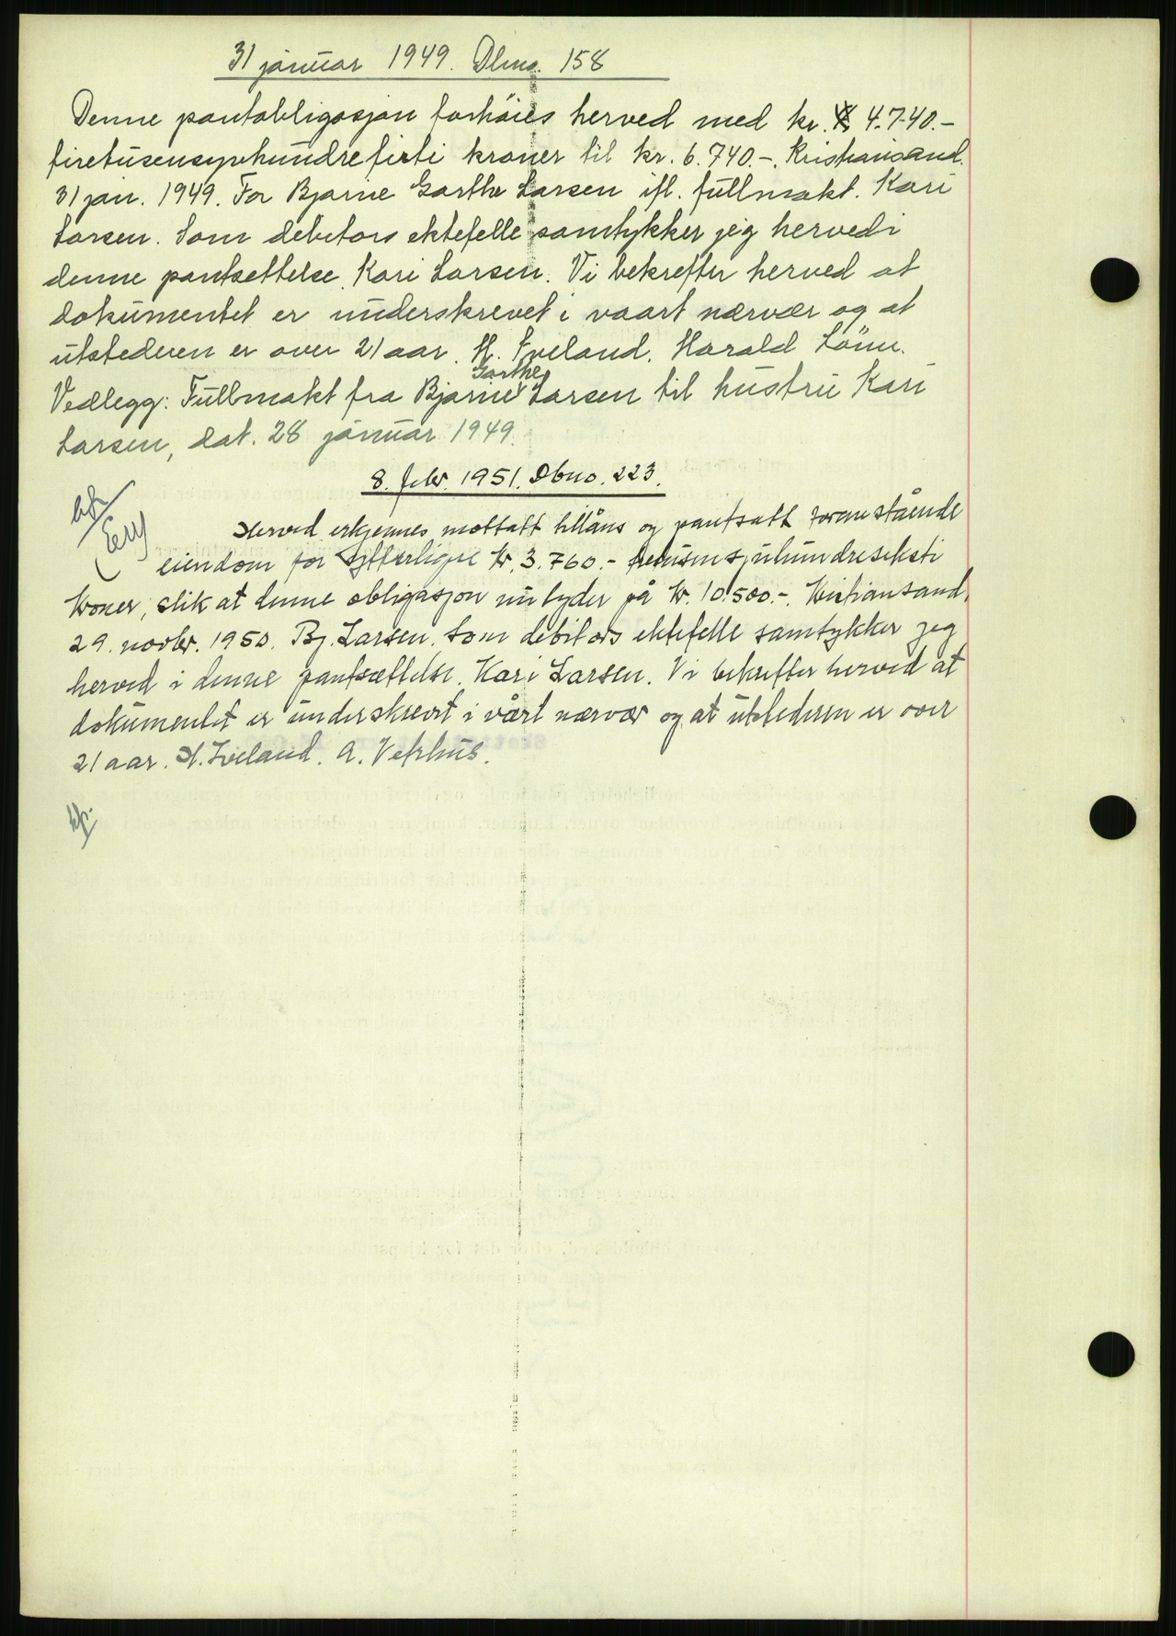 31 januar 1949. Dbno. 158
Denne pantobligasjon forhöies herved med kr. 4.740.-
firetusensyvhundreførti kroner til kr. 6.740.-. Kristiansand.
31 jan. 1949. For Bjarne Garthe Larsen ifl. fullmakt. Kari
Larsen. Som debitors ektefelle samtykker jeg herved i
denne pantsettelse. Kari Larsen. Vi bekrefter herved at
dokumentet er underskrevet i vaart nærvær og at
utstederen er over 21 aar. H. Iveland. Harald Lönn.
Garthe
Vedlegg: Fullmakt fra Bjarne Larsen til hustru Kari
Larsen, dat. 28 januar 1949.
8. febr. 1951. Dbno. 223.
Herved erkjennes mottatt tillåns og pantsatt foranstående
eiendom for ytterligere kr. 3.760.- tretusensjuhundreseksti
kroner, slik at denne obligasjon nu lyder på kr. 10.500.-. Kristiansand,
29. novbr. 1950. Bj. Larsen. Som debitors ektefelle samtykker jeg
herved i denne pantsættelse. Kari Larsen. Vi bekrefter herved at
dokumentet er underskrevet i vårt nærvær og at utstederen er over
21 aar. H. Iveland. A. Vehus.